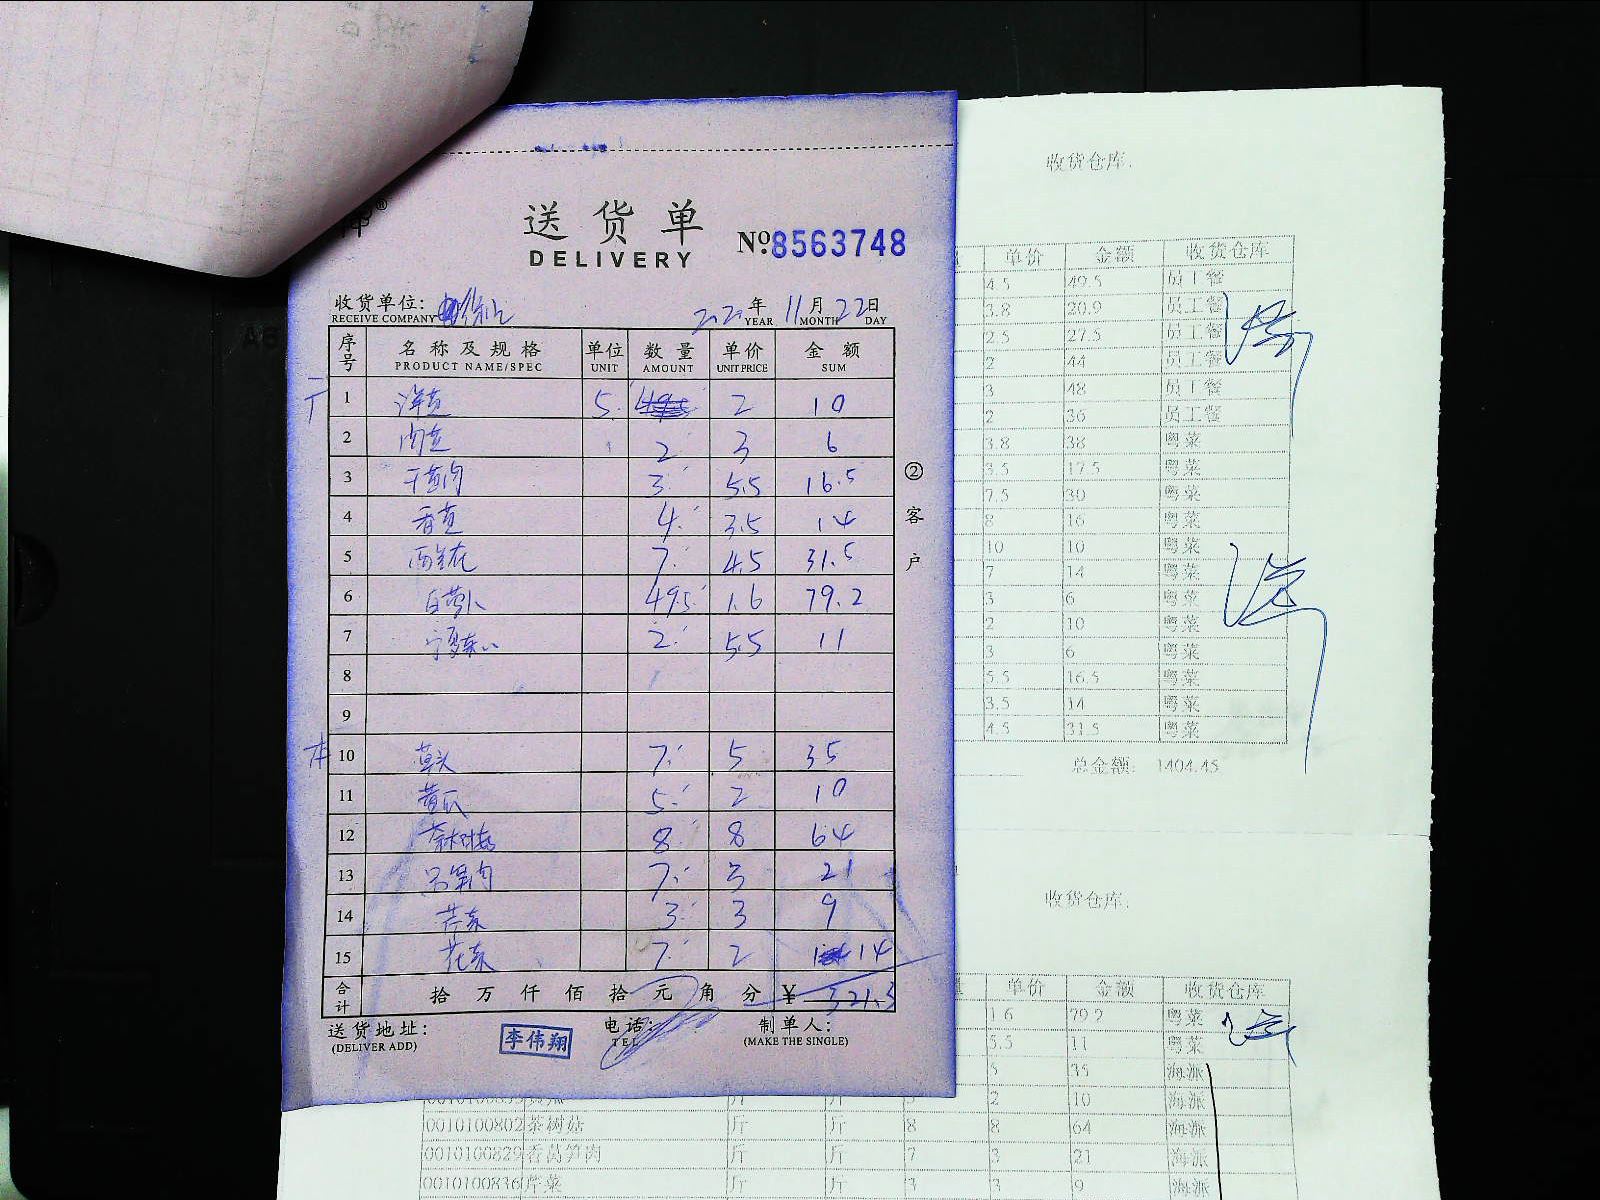 送货单
DELIVERY
№8563748
收货单位:
RECEIVE COMPANY
2020年 11月 22日
YEAR MONTH DAY
序号 名称及规格 单位 数量 单价 金额
PRODUCT NAME/SPEC UNIT AMOUNT UNIT PRICE SUM
1 5 2 10
2 2 3 6
3 3 5.5 16.5
4 香 4 3.5 14
5 西兰花 7 4.5 31.5
6 白萝卜 49.5 1.6 79.2
7 2 5.5 11
8
9
10 草头 7 5 35
11 黄瓜 5 2 10
12 茶树菇 8 8 64
13 7 3 21
14 芹菜 3 3 9
15 花菜 7 2 14
合计 拾 万 仟 佰 拾 元 角 分 ¥ 321.3
送货地址:
(DELIVER ADD)
李伟翔
电话:
TEL
制单人:
(MAKE THE SINGLE)
②客户
收货仓库:
单价 金额 收货仓库
4.5 49.5 员工餐
3.8 20.9 员工餐
2.5 27.5 员工餐
2 44 员工餐
3 48 员工餐
2 36 员工餐
3.8 38 粤菜
3.5 17.5 粤菜
7.5 30 粤菜
8 16 粤菜
10 10 粤菜
7 14 粤菜
3 6 粤菜
2 10 粤菜
3 6 粤菜
5.5 16.5 粤菜
3.5 14 粤菜
4.5 31.5 粤菜
总金额: 1404.45
收货仓库:
单价 金额 收货仓库
1.6 79.2 粤菜
5.5 11 粤菜
5 35 海派
斤 斤 5 2 10 海派
0010100802 茶树菇 斤 斤 8 8 64 海派
0010100829 香莴笋肉 斤 斤 7 3 21 海派
0010100836 芹菜 斤 斤 3 3 9 海派